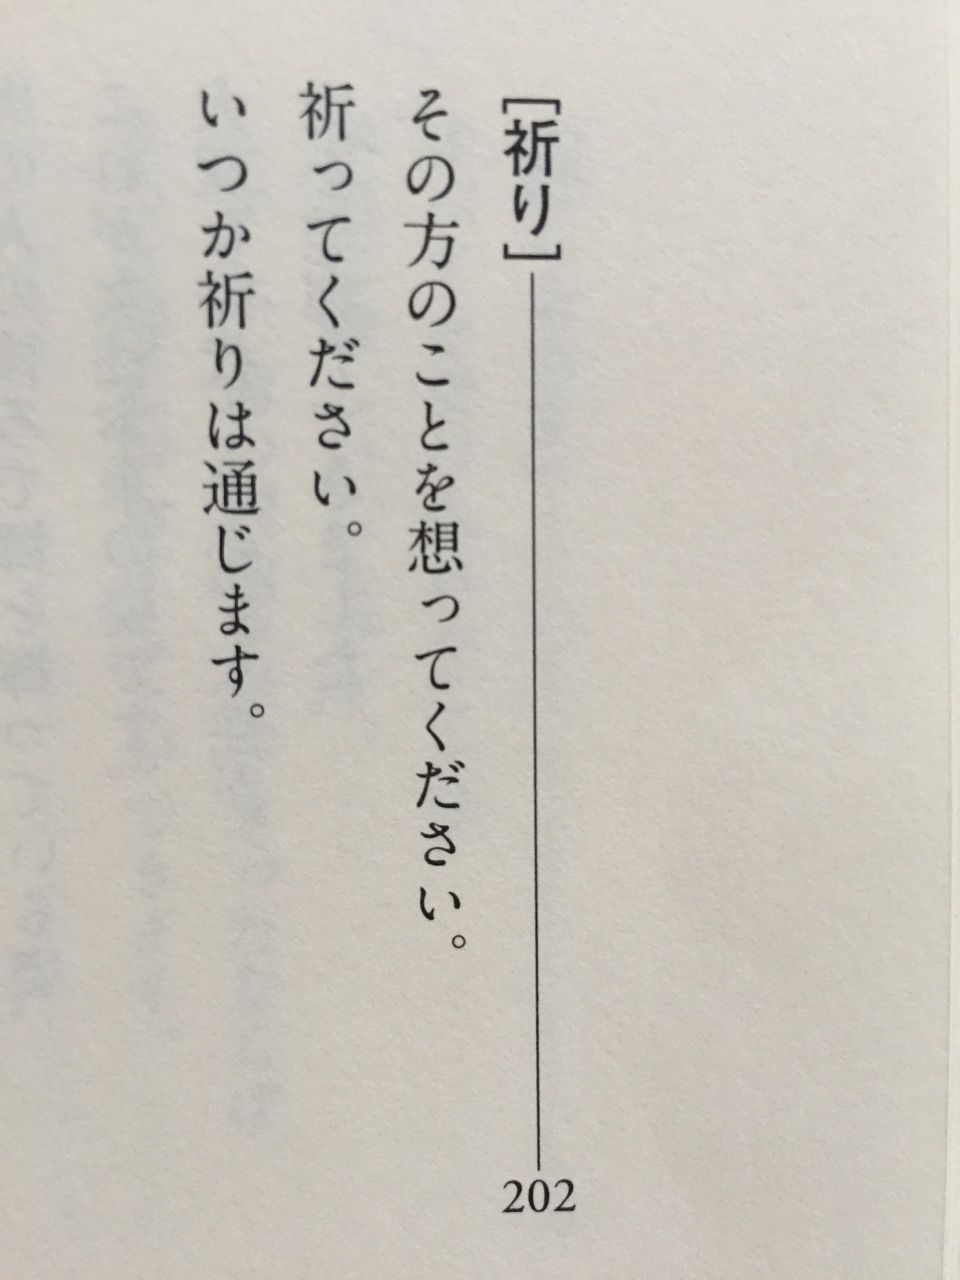 [祈り]——202
その方のことを想ってください。
祈ってください。
いつか祈りは通じます。